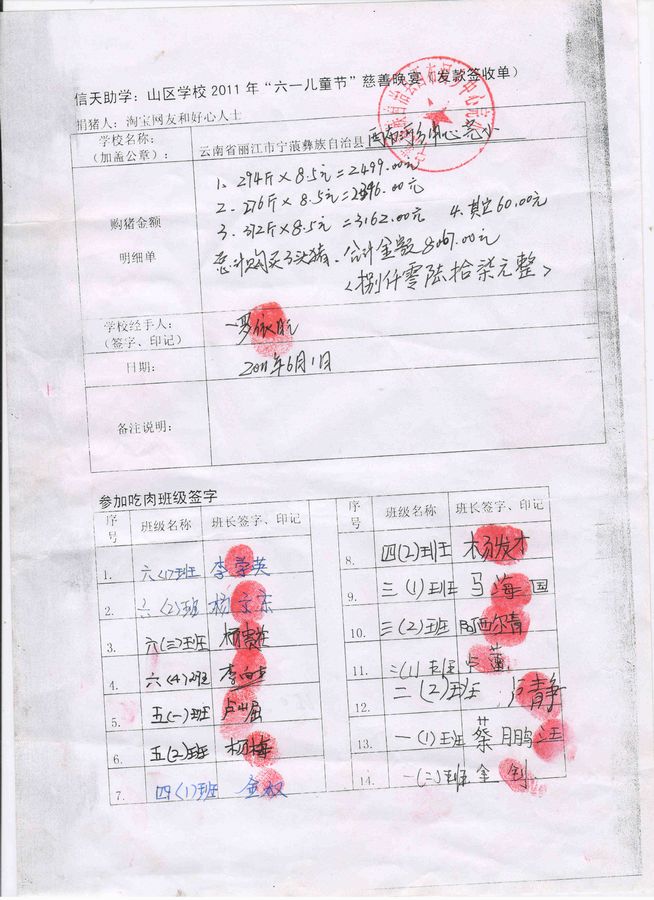 信天助学：山区学校2011年“六一儿童节”慈善晚宴（发款签收单）
捐猪人：淘宝网友和好心人士
学校名称：
（加盖公章）：
云南省丽江市宁蒗彝族自治县西布河乡中心完小
购猪金额
明细单
1、294斤×8.5元=2499.00元
2、276斤×8.5元=2346.00元
3、372斤×8.5元=3162.00元 4、其它60.00元
总计购买3头猪、合计金额8067.00元
<捌仟零陆拾柒元整>
学校经手人：
（签字、印记）
日期：
2011年6月1日
备注说明：
参加吃肉班级签字
序号 班级名称 班长签字、印记
1. 六(1)班 李学英
2. 六(2)班 杨
3. 六(三)班 杨贵
4. 六(4)班 李
5. 五(一)班 卢
6. 五(2)班 杨梅
7. 四(1)班 金权
序号 班级名称 班长签字、印记
8. 四(2)班 杨发才
9. 三(1)班 马海国
10. 三(2)班 阿西尔青
11. 二(1)班 莲
12. 二(2)班 青静
13. 一(1)班 蔡月鹏
14. 一(二)班 金钊